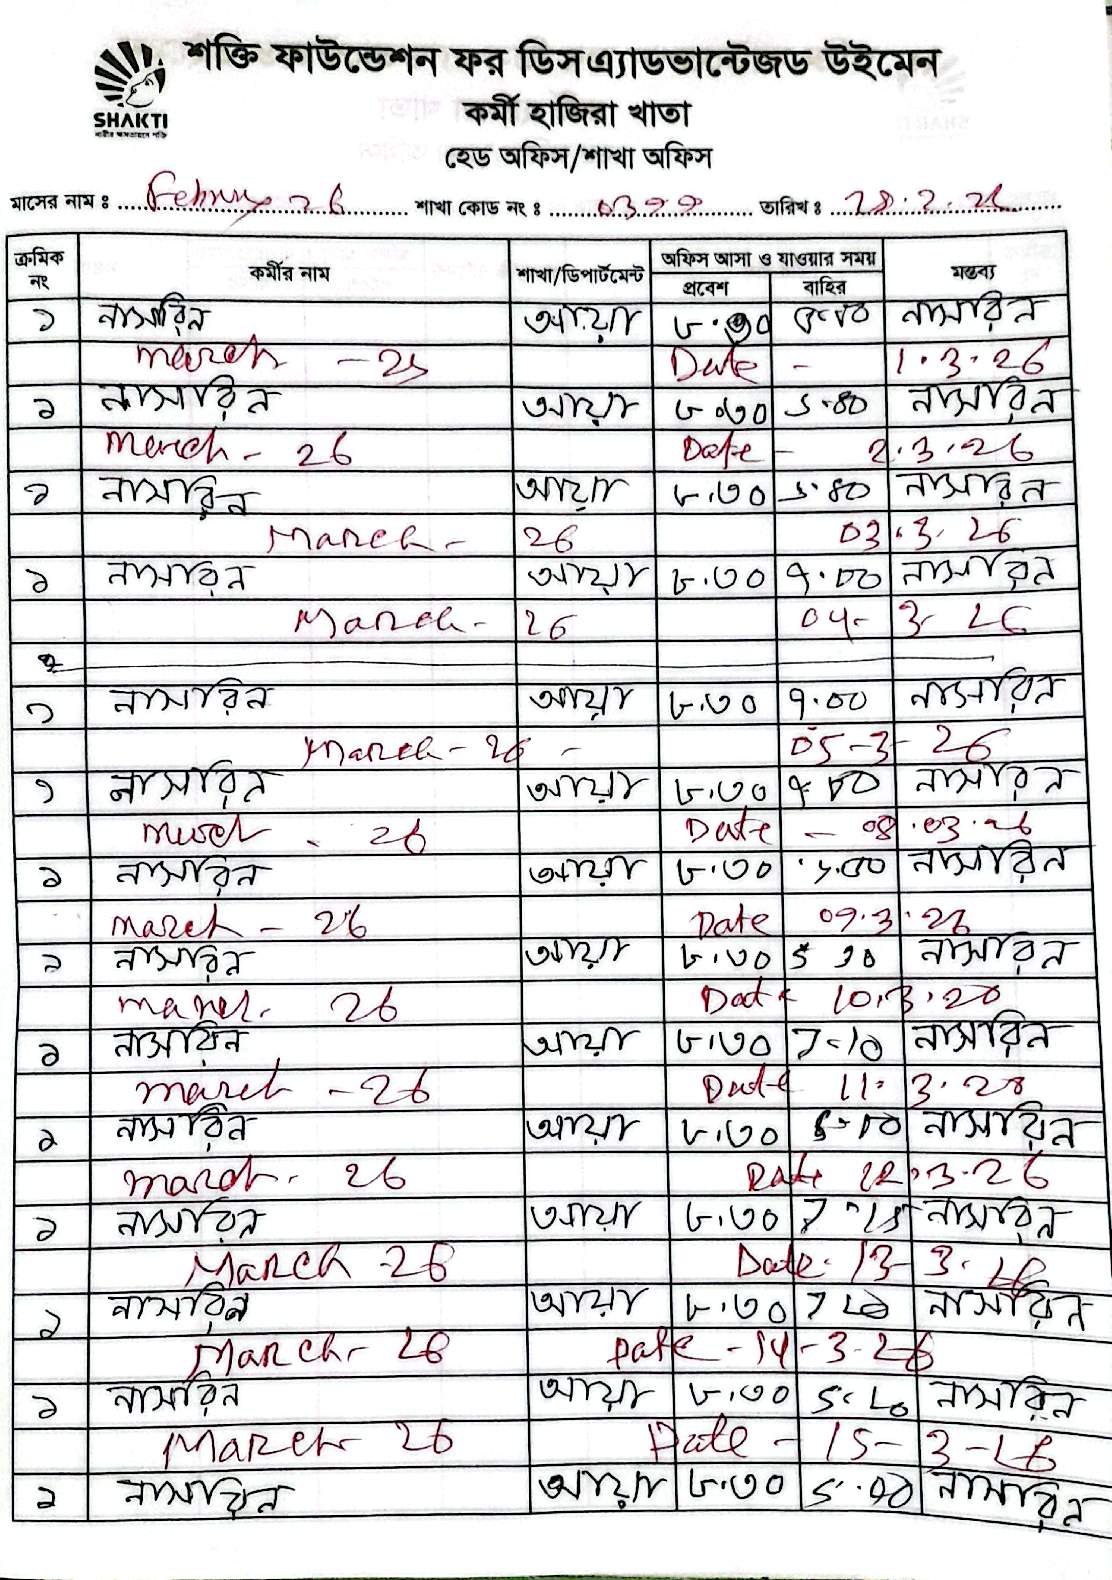 শক্তি ফাউন্ডেশন ফর ডিসএ্যাডভান্টেজড উইমেন
SHAKTI
কর্মী হাজিরা খাতা
হেড অফিস/শাখা অফিস
মাসের নাম ঃ 26 শাখা কোড নং ঃ তারিখ ঃ
ক্রমিক নং কর্মীর নাম শাখা/ডিপার্টমেন্ট অফিস আসা ও যাওয়ার সময় মন্তব্য
প্রবেশ বাহির
১ নাসরিন আয়া ৮.৩০ নাসরিন
March - Date - 1.3.26
১ নাসরিন আয়া ৮.৩০ ৫.৪০ নাসরিন
March - 26 Date - 2.3.26
১ নাসরিন আয়া ৮.৩০ ৫.৪০ নাসরিন
March - 26 03.3.26
১ নাসরিন আয়া ৮.৩০ ৭.০০ নাসরিন
March - 26 04-3-26
১ নাসরিন আয়া ৮.৩০ ৭.০০ নাসরিন
March - 26 - 05-3-26
১ নাসরিন আয়া ৮.৩০ নাসরিন
March - 26 Date - 08.03.26
১ নাসরিন আয়া ৮.৩০ নাসরিন
March - 26 Date 09.3.26
১ নাসরিন আয়া ৮.৩০ নাসরিন
March. 26 Date 10.3.26
১ নাসরিন আয়া ৮.৩০ 7-10 নাসরিন
March - 26 Date 11.3.26
১ নাসরিন আয়া ৮.৩০ নাসরিন
March. 26 Date 12.3.26
১ নাসরিন আয়া ৮.৩০ 7-15 নাসরিন
March -26 Date. 13-3.26
১ নাসরিন আয়া ৮.৩০ নাসরিন
March- 26 Date -14-3-26
১ নাসরিন আয়া ৮.৩০ নাসরিন
March 26 Date - 15-3-26
১ নাসরিন আয়া ৮.৩০ নাসরিন